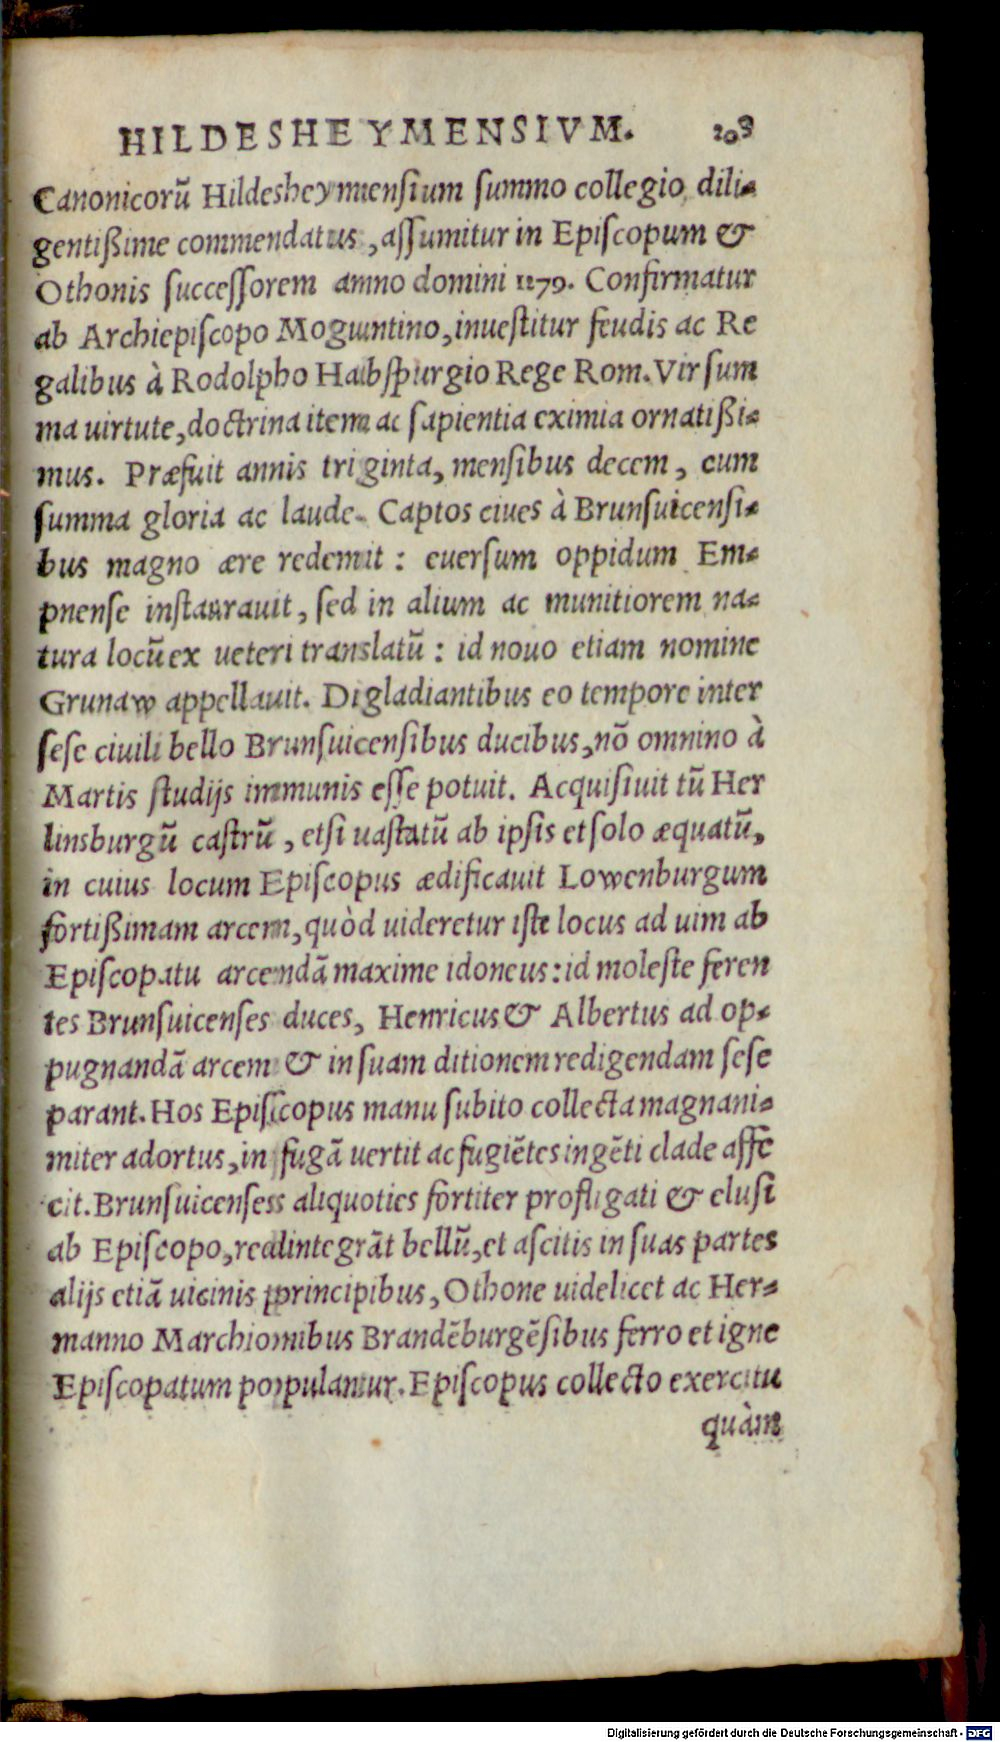 HILDESHEYMENSIVM. 203
Canonicorũ Hildesheymensium summo collegio, dili⸗
gentißime commendatus, assumitur in Episcopum &
Othonis successorem anno domini 1279. Confirmatur
ab Archiepiscopo Moguntino, inuestitur feudis ac Re
galibus à Rodolpho Habspurgio Rege Rom. Vir sum
ma uirtute, doctrina item ac sapientia eximia ornatißi⸗
mus. Præfuit annis triginta, mensibus decem, cum
summa gloria ac laude. Captos ciues à Brunsuicensi⸗
bus magno ære redemit : euersum oppidum Em⸗
pnense instaurauit, sed in alium ac munitiorem na⸗
tura locũ ex ueteri translatũ : id nouo etiam nomine
Grunaw appellauit. Digladiantibus eo tempore inter
sese ciuili bello Brunsuicensibus ducibus, nõ omnino à
Martis studijs immunis esse potuit. Acquisiuit tũ Her
linsburgũ castrũ, etsi uastatũ ab ipsis et solo æquatũ,
in cuius locum Episcopus ædificauit Lowenburgum
fortißimam arcem, quòd uideretur iste locus ad uim ab
Episcopatu arcendã maxime idoneus: id moleste feren
tes Brunsuicenses duces, Henricus & Albertus ad op⸗
pugnandã arcem & in suam ditionem redigendam sese
parant. Hos Episcopus manu subito collecta magnani⸗
miter adortus, in fugã uertit ac fugiẽtes ingẽti clade affe
cit. Brunsuicenses aliquoties fortiter profligati & elusi
ab Episcopo, redintegrãt bellũ, et ascitis in suas partes
alijs etiã uicinis principibus, Othone uidelicet ac Her⸗
manno Marchionibus Brandẽburgẽsibus ferro et igne
Episcopatum populantur. Episcopus collecto exercitu
quàm
Digitalisierung gefördert durch die Deutsche Forschungsgemeinschaft - DFG